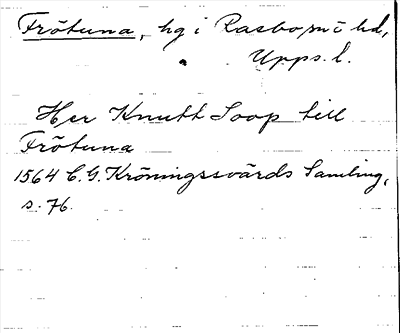 Frötuna, hg i Rasbo sn o hd,
Upps. l.
Herr Knutt Soop till
Frötuna
1564 C.G. Kröningssvärds Samling,
s. 76.